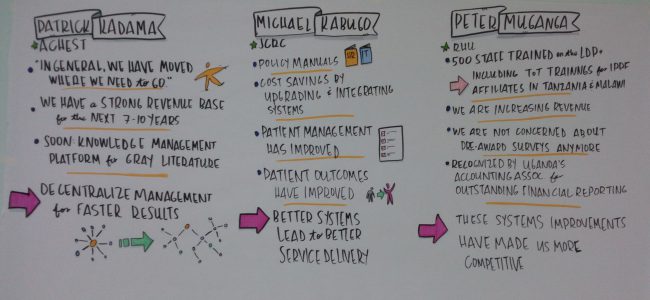 PATRICK KADAMA
ACHEST
"IN GENERAL, WE HAVE MOVED
WHERE WE NEED to GO."
WE HAVE a STRONG REVENUE BASE
for the NEXT 7-10 YEARS
SOON: KNOWLEDGE MANAGEMENT
PLATFORM for GRAY LITERATURE
DECENTRALIZE MANAGEMENT
for FASTER RESULTS
MICHAEL KABUGO
JCRC
POLICY MANUALS
HR IT
COST SAVINGS BY
UPGRADING & INTEGRATING
SYSTEMS
PATIENT MANAGEMENT
HAS IMPROVED
PATIENT OUTCOMES
HAVE IMPROVED
BETTER SYSTEMS
LEAD to BETTER
SERVICE DELIVERY
PETER MUGANGA
RHU
500 STAFF TRAINED on the LDP+
INCLUDING ToT TRAININGS for IPPF
AFFILIATES IN TANZANIA & MALAWI
WE ARE INCREASING REVENUE
WE ARE NOT CONCERNED ABOUT
PRE-AWARD SURVEYS ANYMORE
RECOGNIZED BY UGANDA'S
ACCOUNTING ASSOC for
OUTSTANDING FINANCIAL REPORTING
THESE SYSTEMS IMPROVEMENTS
HAVE MADE US MORE
COMPETITIVE